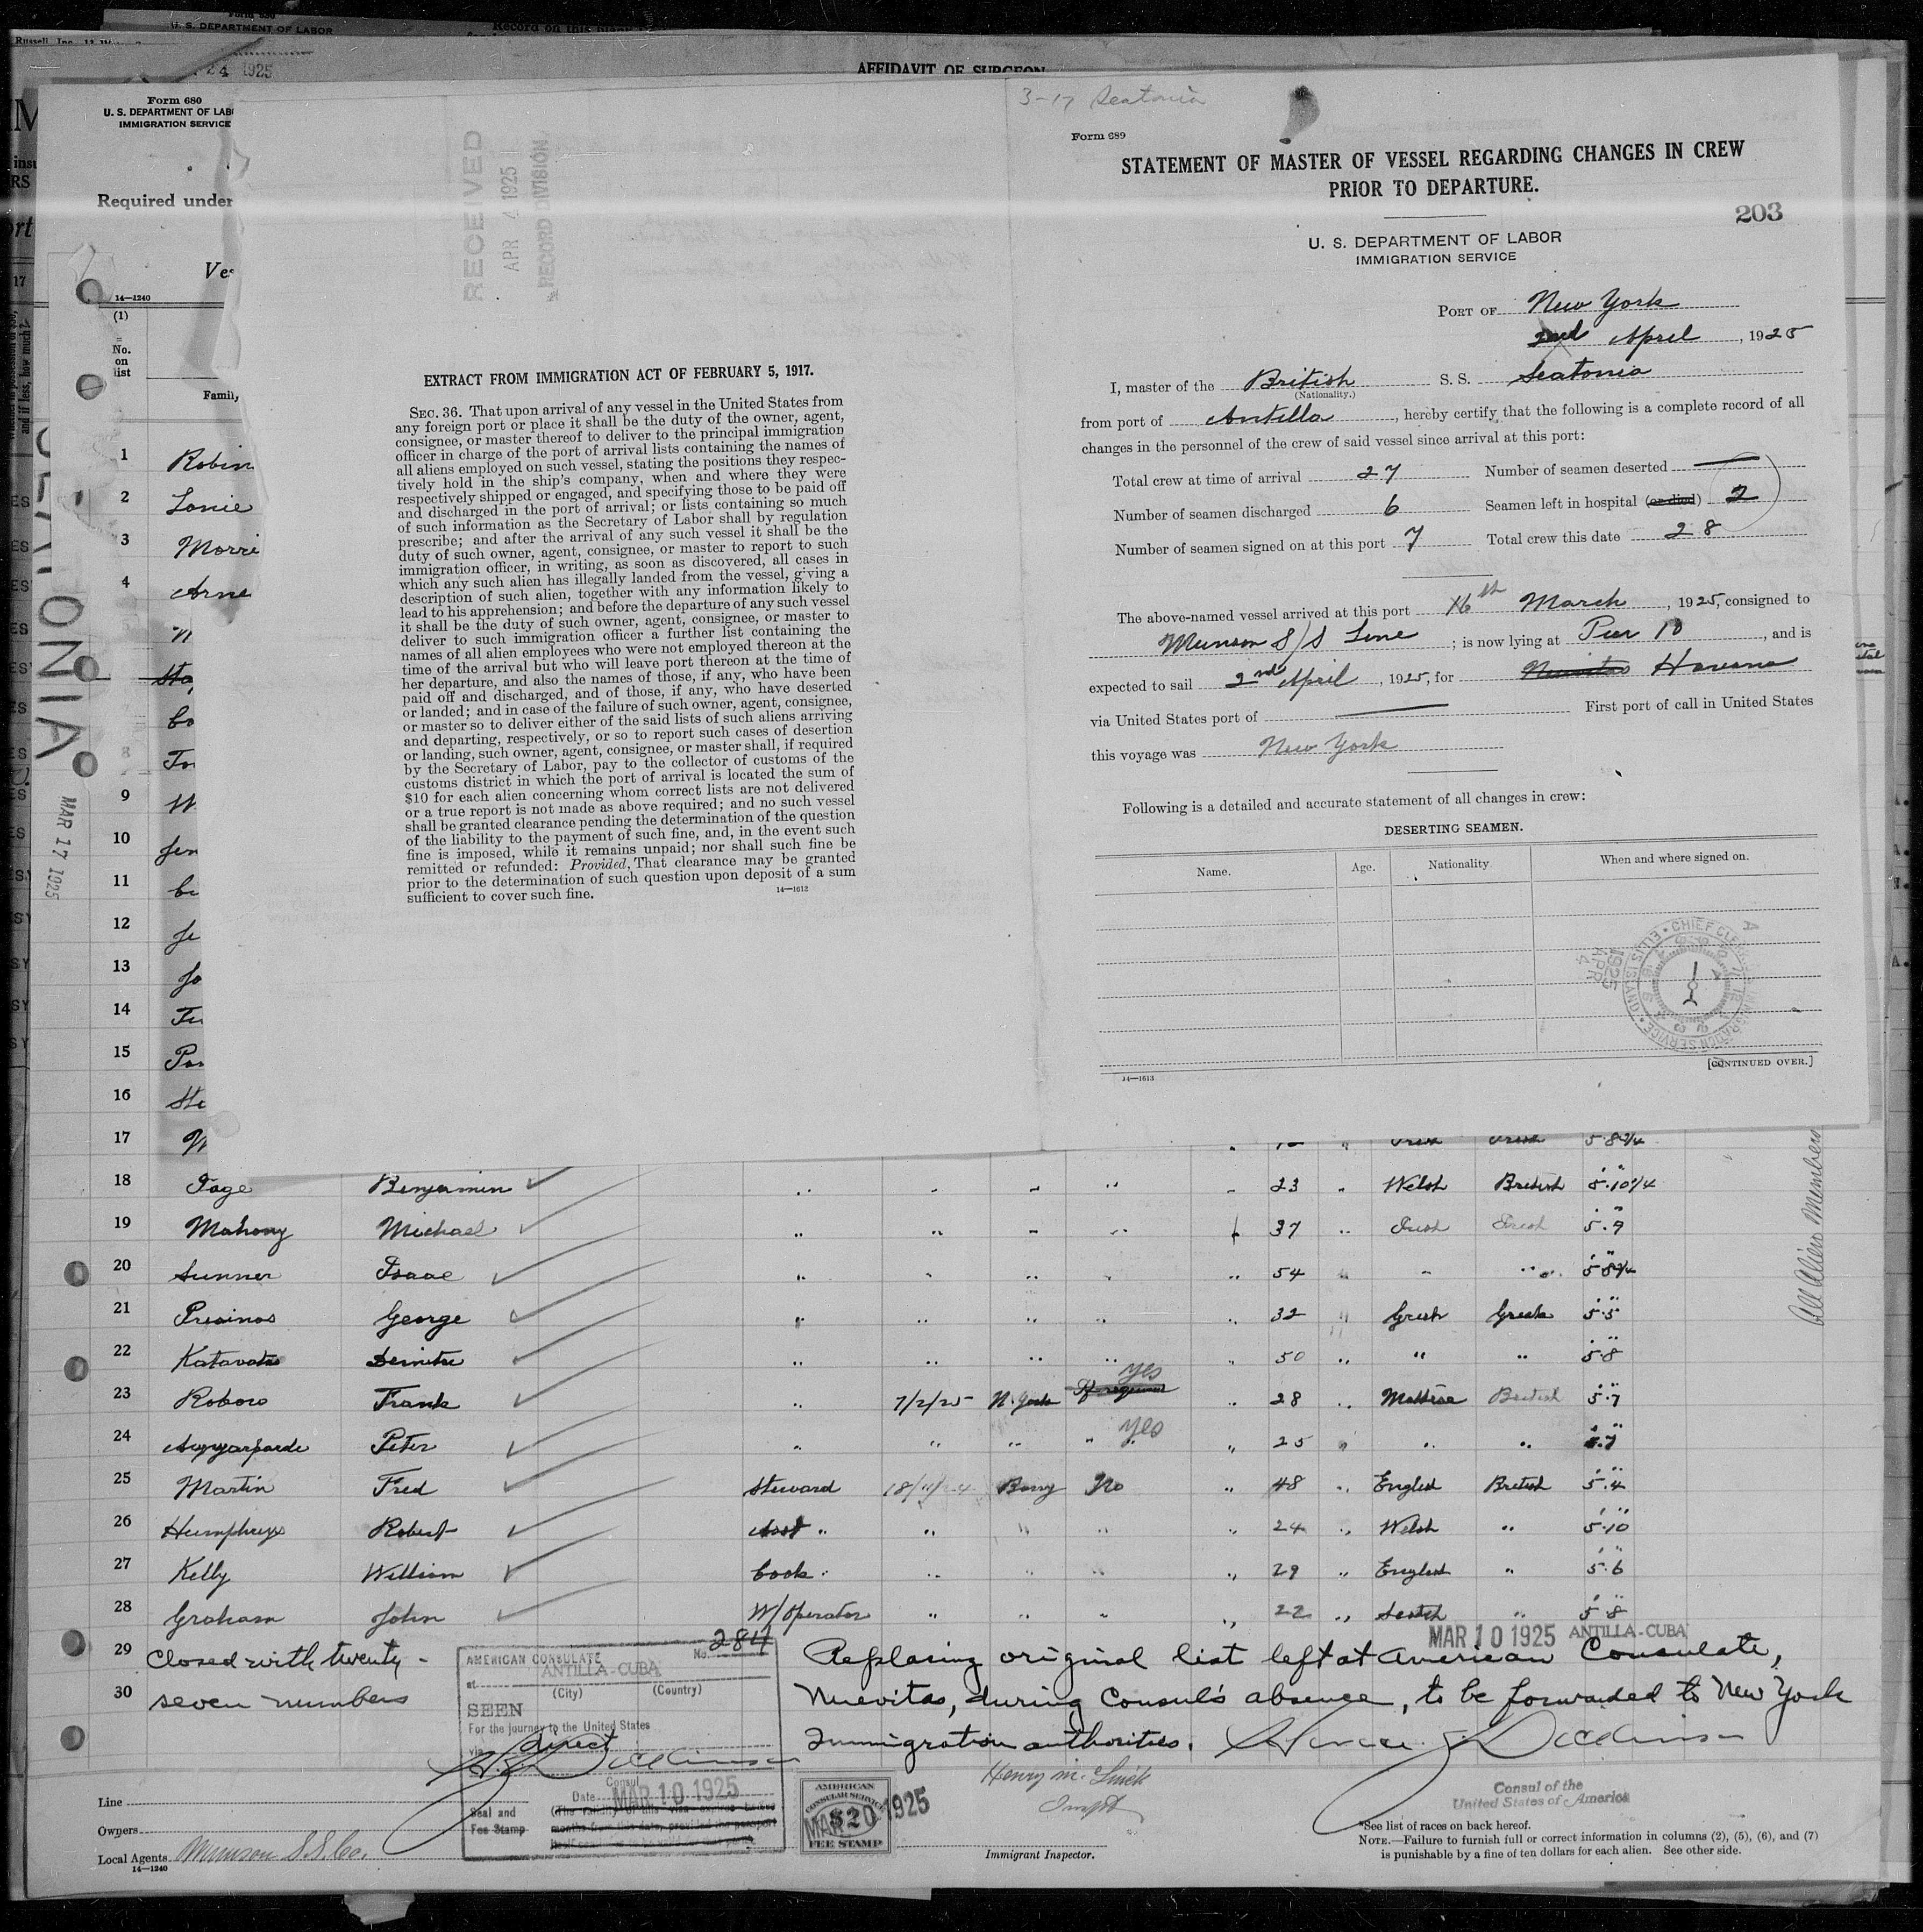 Form 680
U. S. DEPARTMENT OF LABOR
Record on this
Russell, Inc.
24 1925
AFFIDAVIT OF SURGEON
Form 680
U. S. DEPARTMENT OF LAB
IMMIGRATION SERVICE
Required under
Ves
14—1240
(1)
No.
on
list
Family
ONIA
MAR 17 1925
RECEIVED
APR 4 1925
RECORD DIVISION
EXTRACT FROM IMMIGRATION ACT OF FEBRUARY 5, 1917.
SEC. 36. That upon arrival of any vessel in the United States from
any foreign port or place it shall be the duty of the owner, agent,
consignee, or master thereof to deliver to the principal immigration
officer in charge of the port of arrival lists containing the names of
all aliens employed on such vessel, stating the positions they respec-
tively hold in the ship's company, when and where they were
respectively shipped or engaged, and specifying those to be paid off
and discharged in the port of arrival; or lists containing so much
of such information as the Secretary of Labor shall by regulation
prescribe; and after the arrival of any such vessel it shall be the
duty of such owner, agent, consignee, or master to report to such
immigration officer, in writing, as soon as discovered, all cases in
which any such alien has illegally landed from the vessel, giving a
description of such alien, together with any information likely to
lead to his apprehension; and before the departure of any such vessel
it shall be the duty of such owner, agent, consignee, or master to
deliver to such immigration officer a further list containing the
names of all alien employees who were not employed thereon at the
time of the arrival but who will leave port thereon at the time of
her departure, and also the names of those, if any, who have been
paid off and discharged, and of those, if any, who have deserted
or landed; and in case of the failure of such owner, agent, consignee,
or master so to deliver either of the said lists of such aliens arriving
and departing, respectively, or so to report such cases of desertion
or landing, such owner, agent, consignee, or master shall, if required
by the Secretary of Labor, pay to the collector of customs of the
customs district in which the port of arrival is located the sum of
$10 for each alien concerning whom correct lists are not delivered
or a true report is not made as above required; and no such vessel
shall be granted clearance pending the determination of the question
of the liability to the payment of such fine, and, in the event such
fine is imposed, while it remains unpaid; nor shall such fine be
remitted or refunded: Provided, That clearance may be granted
prior to the determination of such question upon deposit of a sum
sufficient to cover such fine.
14—1612
3-17 Seatonia
Form 689
STATEMENT OF MASTER OF VESSEL REGARDING CHANGES IN CREW
PRIOR TO DEPARTURE.
203
U. S. DEPARTMENT OF LABOR
IMMIGRATION SERVICE
PORT OF New York
2nd April, 1925
I, master of the British S. S. Seatonia
(Nationality.)
from port of Antilla, hereby certify that the following is a complete record of all
changes in the personnel of the crew of said vessel since arrival at this port:
Total crew at time of arrival 27 Number of seamen deserted —
Number of seamen discharged 6 Seamen left in hospital (or died) 2
Number of seamen signed on at this port 7 Total crew this date 28
The above-named vessel arrived at this port 16th March, 1925, consigned to
Munson S/S Line; is now lying at Pier 10, and is
expected to sail 2nd April, 1925, for Nuevitas Havana
via United States port of — First port of call in United States
this voyage was New York
Following is a detailed and accurate statement of all changes in crew:
DESERTING SEAMEN.
Name. Age. Nationality. When and where signed on.
CHIEF CLERK IMMIGRATION SERVICE ELLIS ISLAND
1925 APR 4
[CONTINUED OVER.]
14—1613
1 Robin
2 Lonie
3 Morri
4 Arne
8
9 W
10 Jen
11
12
13 Jo
14
15
16
17 5 8 3/4
18 Page Benjamin 23 Welsh British 5.10 1/4
19 Mahony Michael 37 " Irish Irish 5.9
20 Sunner Isaac 54 " " " 5 8 3/4
21 George 32 " Greek Greek 5.5
22 50 " " " 5.8
23 Roboro Frank 7/2/25 N. York yes 28 " Maltese British 5.7
24 Peter " " " yes " 25 " " "
25 Martin Fred Steward 18/11/24 Barry No " 48 " English British 5.4
26 Humphreys Robert Asst " " " " " 24 " Welsh " 5.10
27 Kelly William Cook " " " " 29 " English " 5.6
28 Graham John W/operator " " " " 22 " Scotch " 5.8
29 Closed with twenty-
30 seven members
All Alien Members
MAR 10 1925 ANTILLA-CUBA
Replacing original list left at American Consulate,
Nuevitas, during Consul's absence, to be forwarded to New York
Immigration authorities.
AMERICAN CONSULATE No. 284
at ANTILLA-CUBA
(City) (Country)
SEEN
For the journey to the United States
via direct
Consul
Date MAR 10 1925
Seal and
Fee Stamp
AMERICAN
CONSULAR SERVICE
$20
FEE STAMP
MAR 1925
Consul of the
United States of America
Line
Owners
Local Agents Munson S.S. Co.
14—1240
Immigrant Inspector.
*See list of races on back hereof.
NOTE.—Failure to furnish full or correct information in columns (2), (5), (6), and (7)
is punishable by a fine of ten dollars for each alien. See other side.